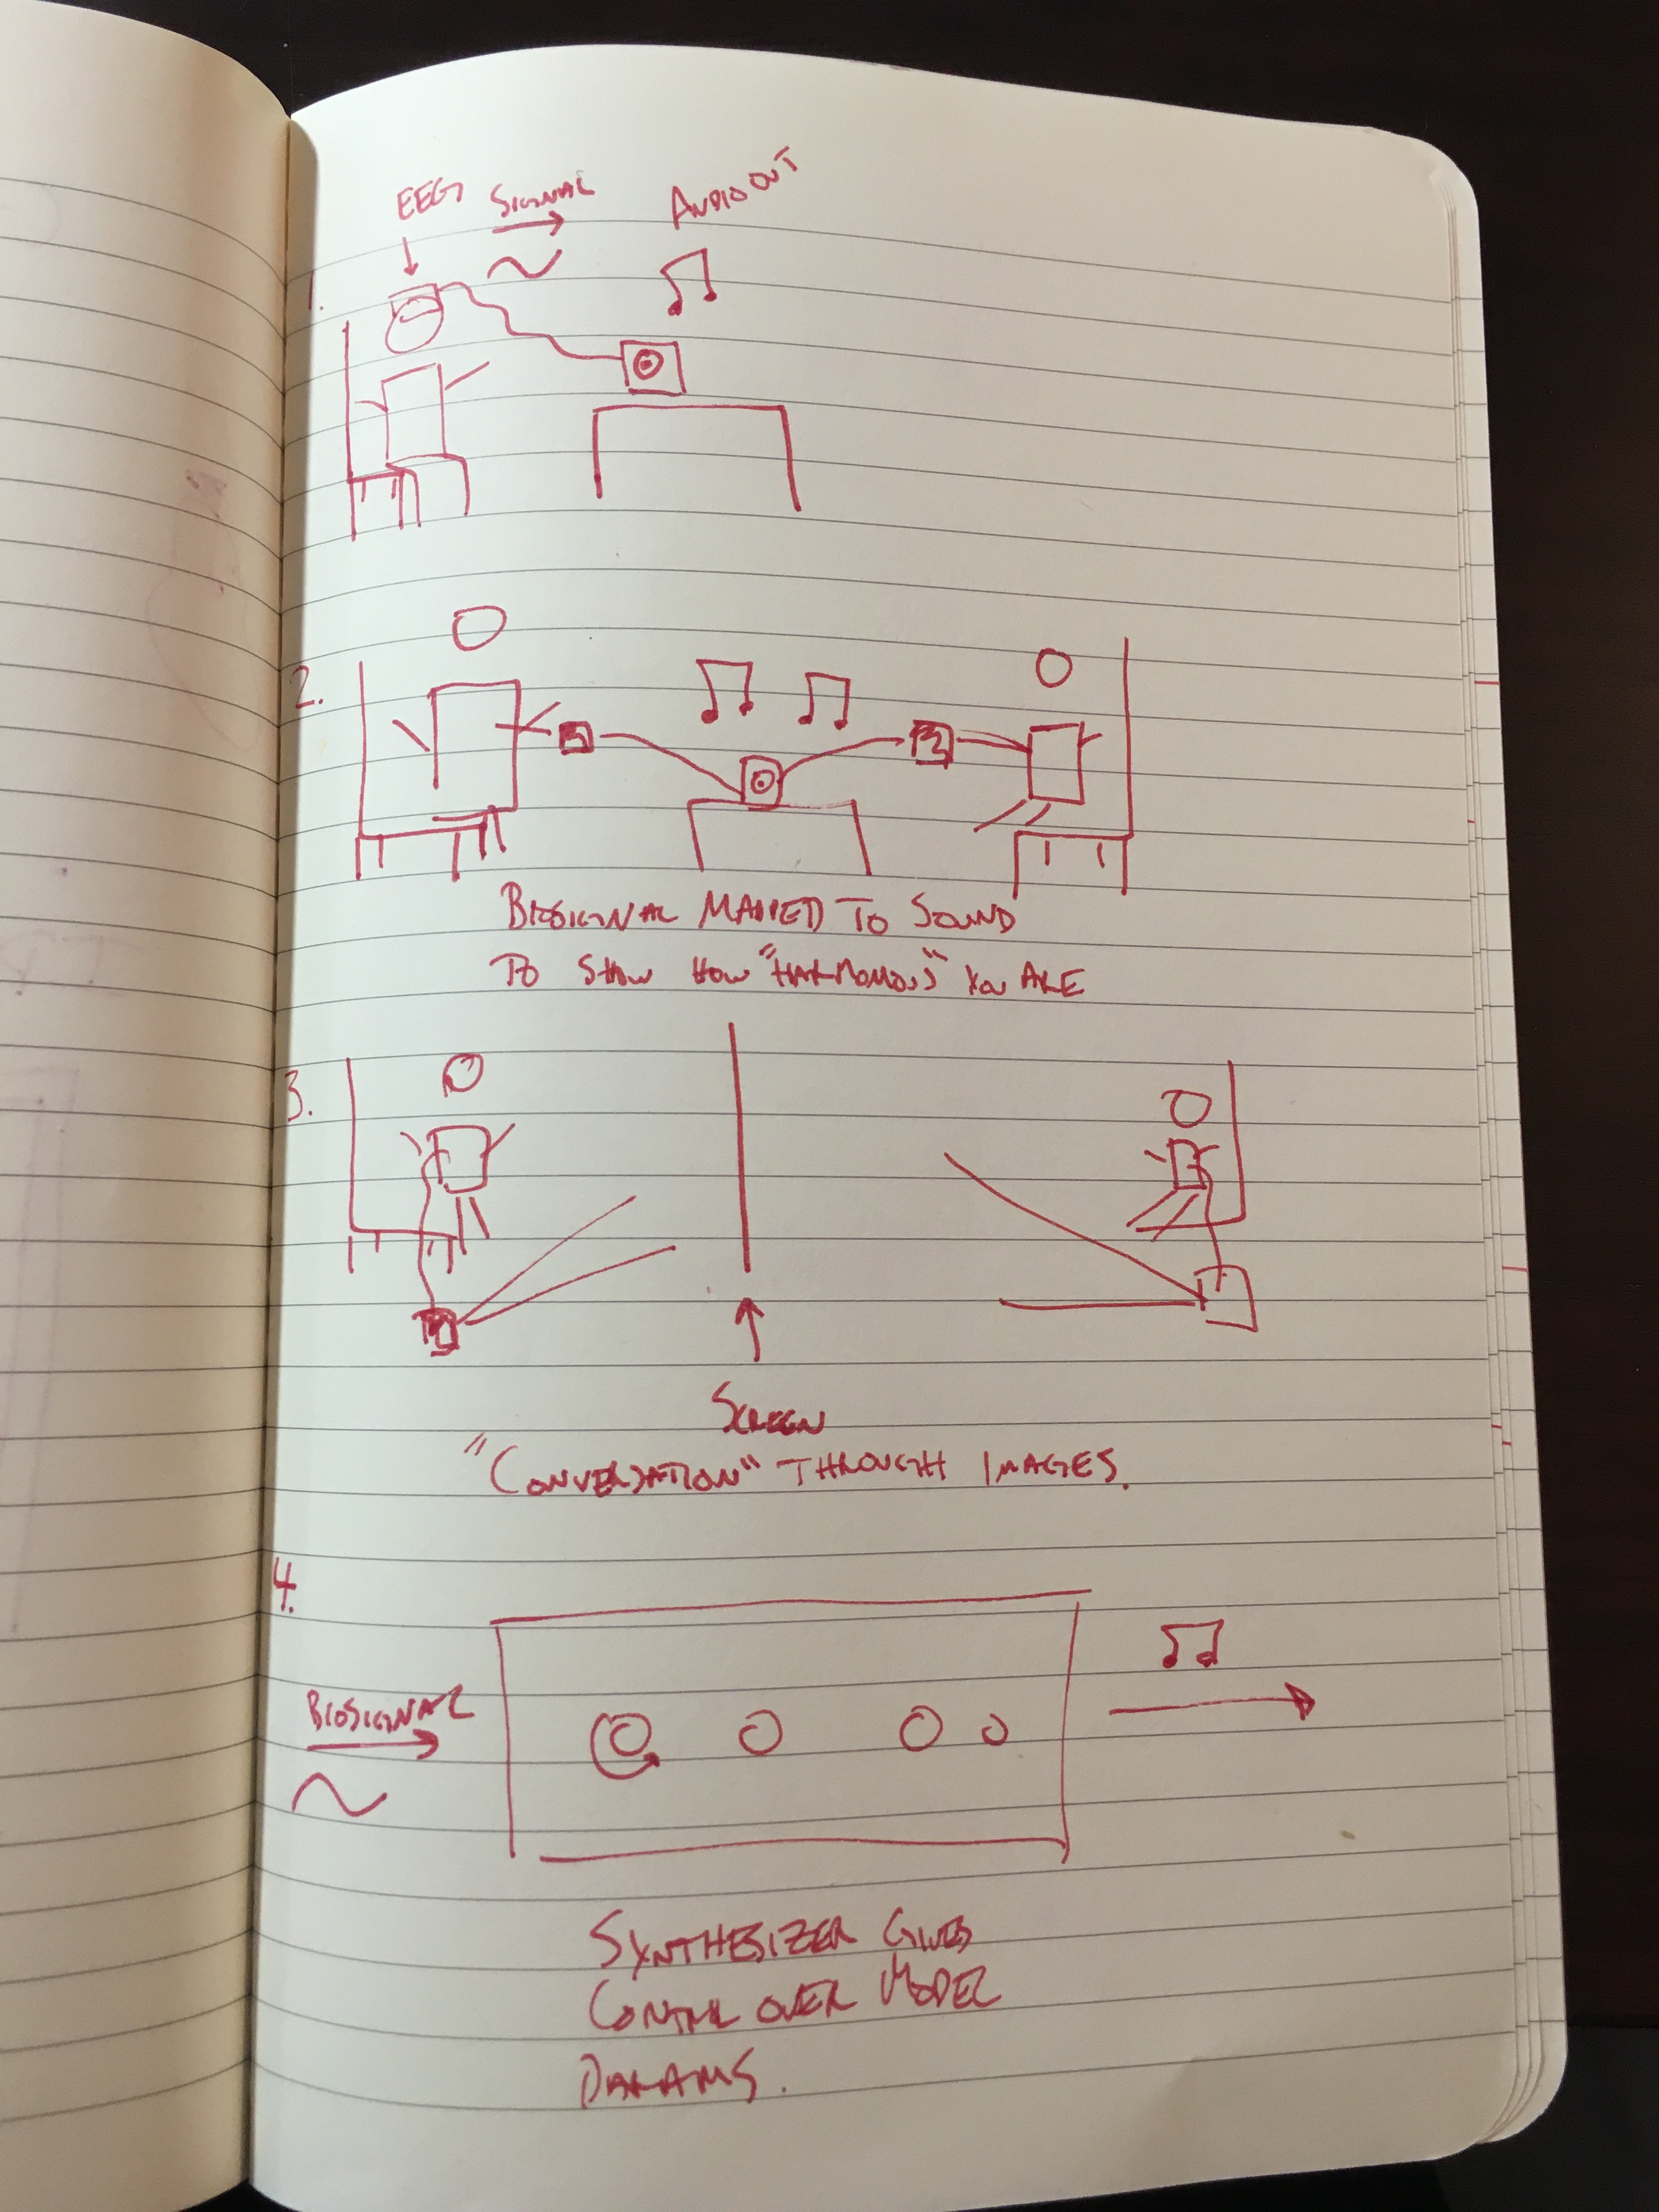 EEG SIGNAL AUDIO OUT
1.
2.
BIOSIGNAL MAPPED TO SOUND
TO SHOW HOW "HARMONIOUS" YOU ARE
3.
SCREEN
"CONVERSATION" THROUGH IMAGES.
4.
BIOSIGNAL
SYNTHESIZER GIVES
CONTROL OVER MODEL
PARAMS.